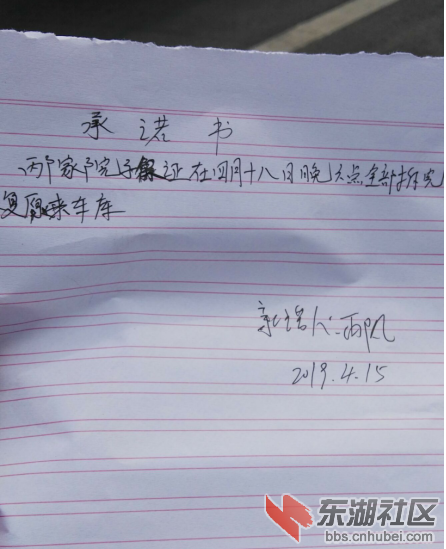 承诺书
两家院子保证在四月十八日晚六点全部拆完
复原来车库
2019.4.15
东湖社区
bbs.cnhubei.com